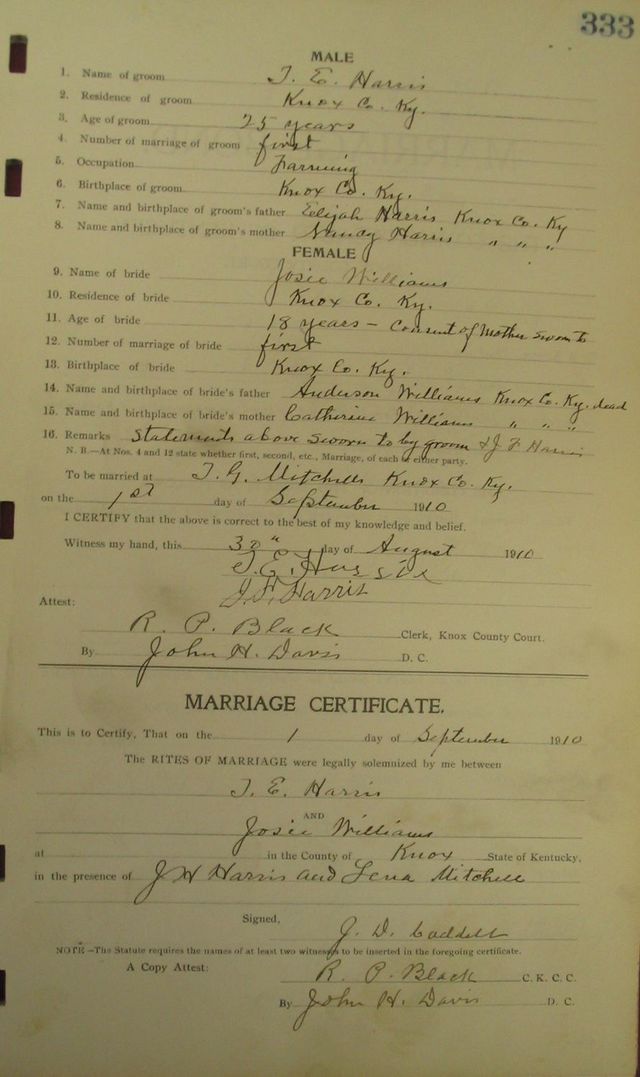 333
MALE
1. Name of groom T. E. Harris
2. Residence of groom Knox Co. Ky.
3. Age of groom 25 years
4. Number of marriage of groom first
5. Occupation Farming
6. Birthplace of groom Knox Co. Ky.
7. Name and birthplace of groom's father Elijah Harris Knox Co. Ky
8. Name and birthplace of groom's mother Nancy Harris " " "
FEMALE
9. Name of bride Josie Williams
10. Residence of bride Knox Co. Ky.
11. Age of bride 18 years – Consent of Mother sworn to
12. Number of marriage of bride first
13. Birthplace of bride Knox Co. Ky.
14. Name and birthplace of bride's father Anderson Williams Knox Co. Ky. dead
15. Name and birthplace of bride's mother Catherine Williams " " "
16. Remarks Statements above sworn to by groom & J F Harris
N. B.—At Nos. 4 and 12 state whether first, second, etc., Marriage, of each or either party.
To be married at T. G. Mitchells Knox Co. Ky.
on the 1st day of September 1910
I CERTIFY that the above is correct to the best of my knowledge and belief.
Witness my hand, this 30" day of August 1910
T. E. Harris
J. F. Harris
Attest:
R. P. Black Clerk, Knox County Court.
By John H. Davis D. C.
MARRIAGE CERTIFICATE.
This is to Certify, That on the 1 day of September 1910
The RITES OF MARRIAGE were legally solemnized by me between
T. E. Harris
AND
Josie Williams
at in the County of Knox State of Kentucky,
in the presence of J H Harris and Lena Mitchell
Signed, J. D.
NOTE—The Statute requires the names of at least two witnesses to be inserted in the foregoing certificate.
A Copy Attest: R. P. Black C. K. C. C.
By John H. Davis D. C.